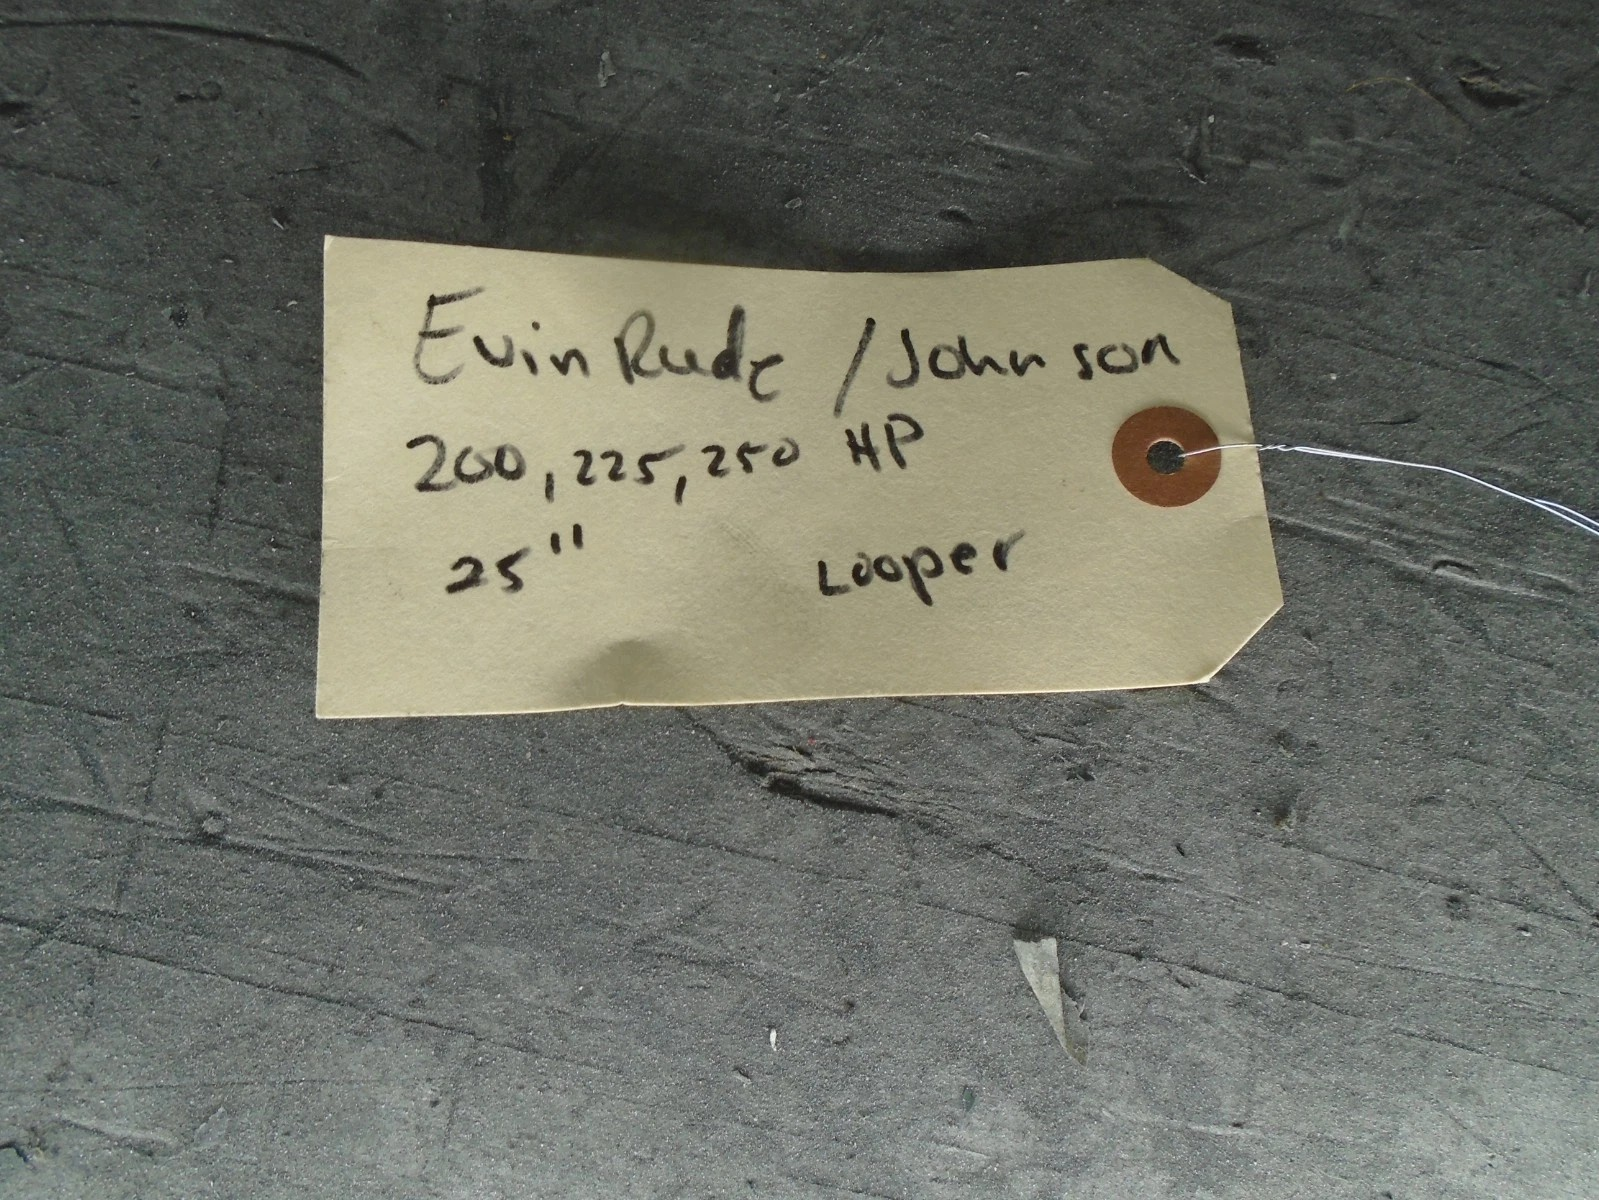 EvinRude / Johnson
200, 225, 250 HP
25" Looper